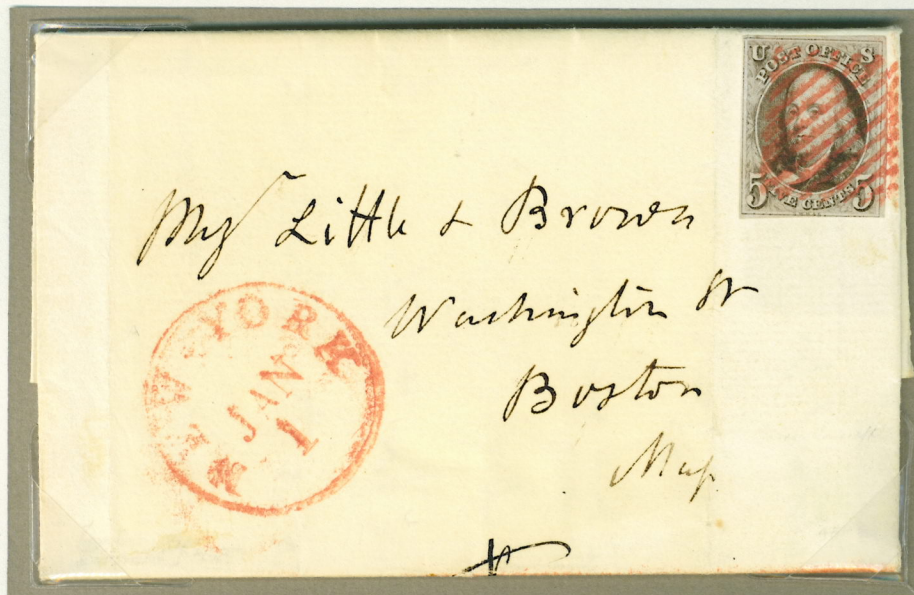 U S
POST OFFICE
5 FIVE CENTS 5
Mess^rs Little & Brown
Washington St
Boston
Mass
NEW-YORK
JAN
1